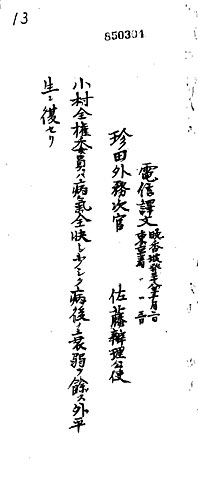 13
850301
電信譯文
珍田外務次官
佐藤辨理公使
小村全權委員ハ病氣全快シ少シク病後ノ衰弱ヲ餘ス外平
生ニ復セリ